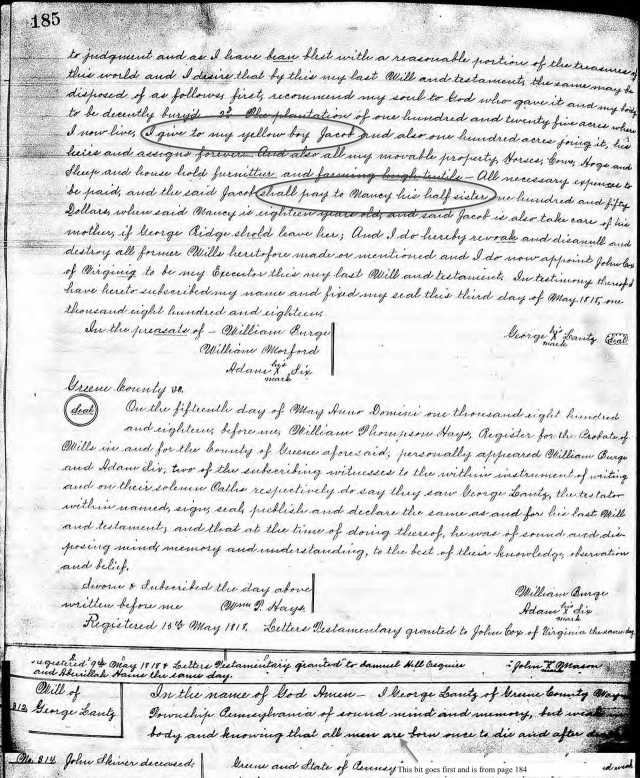 185
to judgment and as I have bean blest with a reasonable portion of the treasures of
this world and I desire that by this my last Will and testament, the same may be
disposed of as follows, first, recommend my soul to God who gave it and my body
to be decently buryd 2d The plantation of one hundred and twenty five acres where
I now live, I give to my yellow boy Jacob and also one hundred acres joing it, his
heirs and assigns forever. And also all my movable property, Horses, Cows, Hogs and
Sheep and house hold furnitier and farming
 - All necessary expences to
be paid, and the said Jacob shall pay to Nancy his half sister one hundred and fifty
Dollars, when said Nancy is eighteen years old, and said Jacob is also take care of his
mother, if George Ridge shold leave her; And I do hereby revoak and disanull and
destroy all former Wills heretofore made or mentioned and I do now appoint John Cox
of Virginia to be my Executor this my last Will and testament. In testimony thereof I
have hereto subscribed my name and fixed my seal this third day of May 1818, one
thousand eight hundred and eighteen
In the preasats of - William Burge
George his X mark Lantz seal
William Morford
Adam his X mark Six
Greene County ss.
seal
On the fifteenth day of May Anno Domini one thousand eight hundred
and eighteen, before me, William Thompson Hays, Register for the Probate of
Wills in and for the County of Greene aforesaid, personally appeared William Burge
and Adam Six, two of the subscribing witnesses to the within instrument of writing
and on their solemn Oaths respectively do say they saw George Lantz, the testator
within named, sign, seal, publish and declare the same as and for his last Will
and testament; and that at the time of doing thereof, he was of sound and dis-
posing mind, memory and understanding, to the best of their knowledge, observation
and belief.
Sworn & Subscribed the day above
William Burge
written before me Wm T. Hays,
Adam his X mark Six
Registered 15th May 1818. Letters Testamentary granted to John Cox of Virginia the same day.
Registered 9th May 1818 & Letters Testamentary granted to Samuel Hill Esquire
John X Mason
and Aberillah Hains the same day.
Will of
George Lantz
In the name of God Amen - I George Lantz of Greene County Wayne
Township Pennsylvania of sound mind and memory, but weak
body and knowing that all men are born once to die and after death
No. 814 John Skiver deceased,
Greene and State of Pennsy
This bit goes first and is from page 184